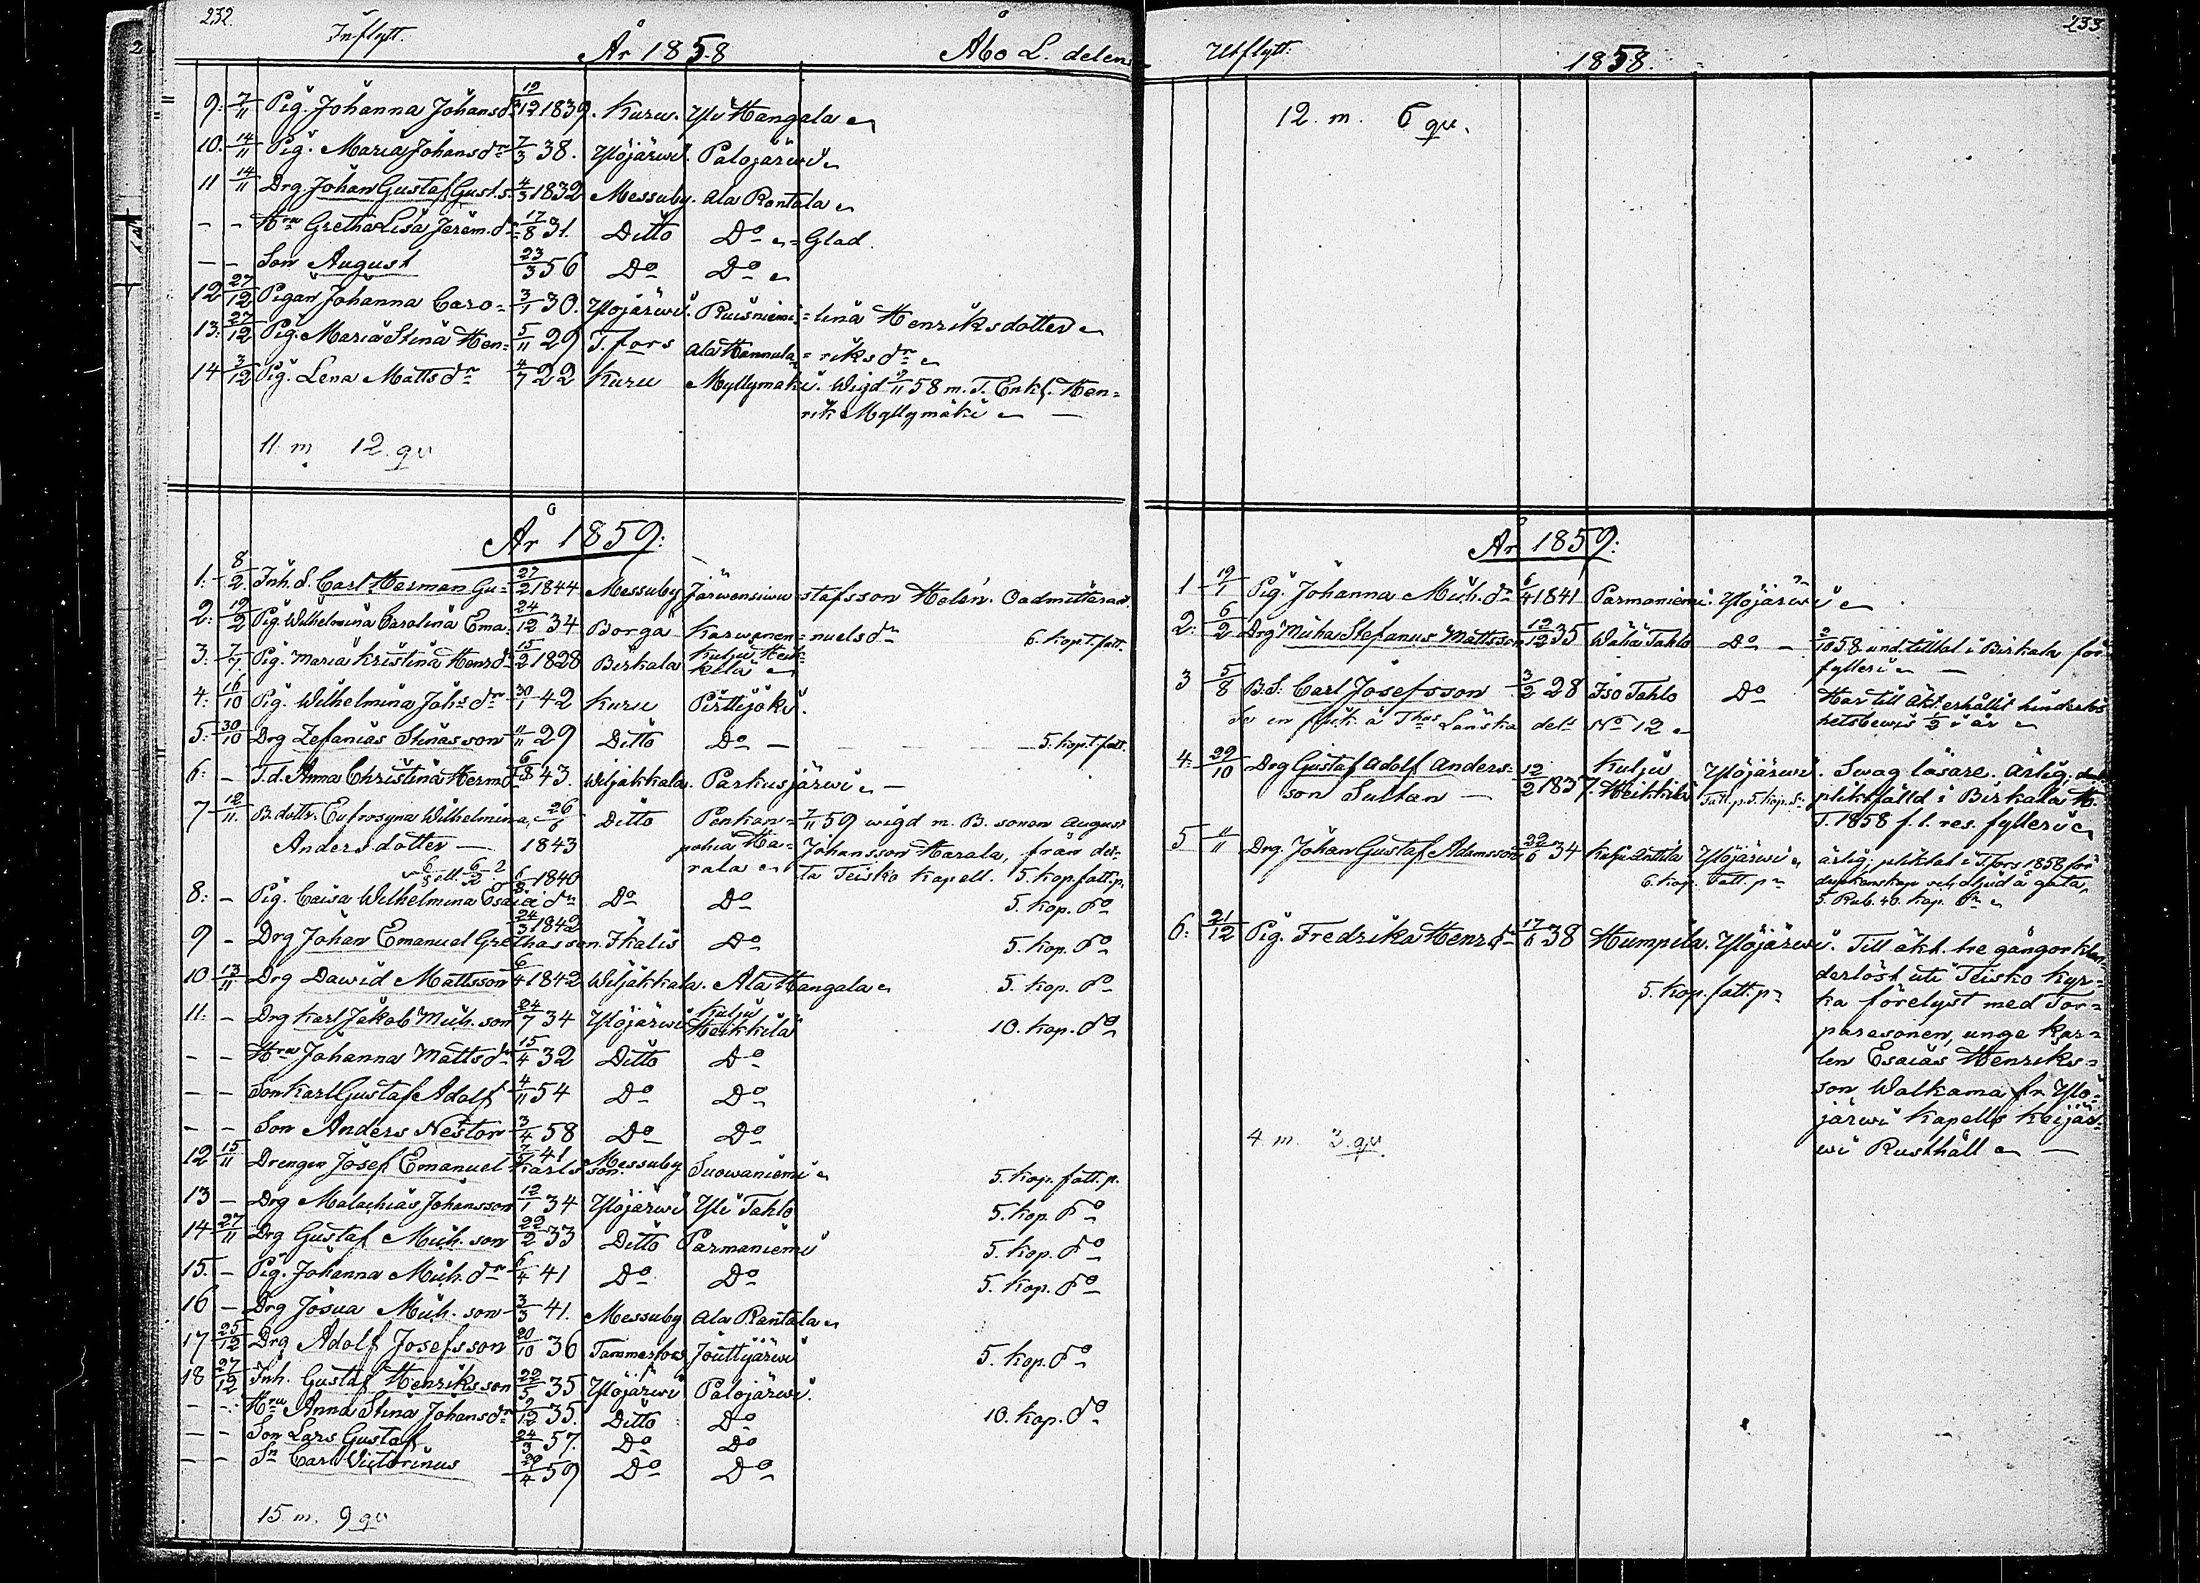 232.
Inflytt. År 1858 Åbo L. delen
9: 7/11 Pig. Johanna Johansdr 19/12 1839. Kuru. Yli Hangala
10. 14/11 Pig. Maria Johansdr 7/3 38. Ylöjärwi. Palojärwi
11 14/11 Drg. Johan Gustaf Gust.s. 4/3 1832 Messuby. Ala Rantala
- - Hru Gretha Lisa Jerem.dr 17/8 31. Ditto Do = Glad.
- - Son August 23/3 56 Do Do
12 27/12 Pigan Johanna Caro= 3/1 30. Ylöjärwi. Ruisniemi = lina Henriksdotter
13: 27/12 Pig. Maria Stina Hen= 5/11 29 T.fors Ala Hannula = riksdr
14 3/12 Pig. Lena Mattsdr 4/7 22 Kuru Myllymäki. Wigd 9/11 58 m. T. Enkl. Hen=
rik Myllymäki
11. m 12. qv
År 1859:
1: 8/2 Inh. S. Carl Herman Gu= 27/2 1844 Messuby Järwensiwu stafsson Helén. Oadmitterad.
2: 19/2 Pig. Wilhelmina Carolina Ema= 24/12 34 Borgå Karwonen = nuelsdr 6. kop. f. fatt.
3: 7/7 Pig. Maria Kristina Henrdr 15/2 1828 Birkala Kulju Heik=
kilä
4: 16/10 Pig. Wilhelmina Johsdr 30/1 42 Kuru Pirttijoki.
5: 30/10 Drg Zefanias Stinasson 11/11 29 Ditto Do - 5. kop. f. fatt.
6: - T.d. Anna Christina Hermdr 6/8 43. Wiljakkala. Parkusjärwi
7 12/11 B.dottr. Eufrosyna Wilhelmina, 26/6 Ditto Penkan= 7/11 59 wigd m. B. sonen August
Andersdotter 1843 pohia Ha= Johansson Harala, från det=
rala ta Teisko Kapell. 5. kop. fatt.p.
8: - Pig. Caisa Wilhelmina Esaiædr 6/8 1840 Do Do 5. kop. do
9 - Drg Johan Emanuel Grethasson. 24/3 1842 Ikalis Do 5. kop. do
10 13/11 Drg Dawid Mattsson 6/4 1842 Wiljakkala. Ala Hangala 5. kop. do
11: - Drg Karl Jakob Mich.son 24/7 34 Ylöjärwi Kulju
Heikkilä 10. kop. do
- - Hru Johanna Mattsdr 15/4 32 Ditto Do
- - Son Karl Gustaf Adolf 4/11 54 Do Do
- - Son Anders Nestor 3/4 58 Do Do
12 15/11 Drengen Josef Emanuel Karlsson. 7/5 41 Messuby Suowaniemi 5. kop. fatt.p.
13 - Drg Malachias Johansson 12/1 34 Ylöjärwi Yli Tahlo 5. kop. do
14 27/11 Drg Gustaf Mich. son 22/2 33 Ditto Parmaniemi 5. kop. do
15. - Pig. Johanna Mich. dr 6/4 41 Do Do 5. kop. do
16 - Drg Josua Mich. son 3/3 41. Messuby Ala Rantala
17 25/12 Drg Adolf Josefsson 20/10 36 Tammerfors Jouttijärwi 5. kop. do
18 27/12 Inh. Gustaf Henriksson 22/5 35 Ylöjärwi Palojärwi.
- - Hru Anna Stina Johansdr 2/12 35. Ditto Do 10. kop. do
- - Son Lars Gustaf 24/3 57. Do Do
- - Sn Carl Victorinus 29/4 59 Do Do
15. m. 9 qv
233
Utflytt. 1858.
12. m. 6 qv.
År 1859:
1 19/1 Pig. Johanna Mich.dr 6/4 1841 Parmaniemi. Ylöjärwi
2: 6/2 Drg Micha Stefanus Mattsson 12/12 35 Wähä Tahlo Do - 2/10 58 und. tilltal i Birkala för
fylleri
3 5/8 B.S: Carl Josefsson 3/2 28 Iso Tahlo Do Har till äkt. erhållit hinderlös
Länska del: No 12 hetsbewis i år
4: 29/10 Drg Gustaf Adolf Anders= 12/2 1837. Kulju Ylöjärwi. Swag läsare. Ärlig;
son Sultan Heikkilä Fatt.p. 5. kop. S. pliktfälld i Birkala H.
T. 1858 f. 1. res. fylleri
5 11/11 Drg. Johan Gustaf Adamsson 22/6 34 Kulju Anttila Ylöjärwi ärlig; pliktat i Tfors 1858 för
6. kop. Fatt.p. dryckenskap och oljud å gata,
5. Rub. 40. kop. Sr
6: 21/12 Pig. Fredrika Henrdr 17/6 38 Humpila. Ylöjärwi. Till äkt. tre gångor klan=
5. kop. fatt.p. derlöst uti Teisko Kyr=
ka förelyst med Tor=
paresonen, unge kar=
len Esaias Henriks=
son Walkama fr. Ylö=
järwi Kapells Keijär=
wi Rusthåll
4 m. 2. qv.